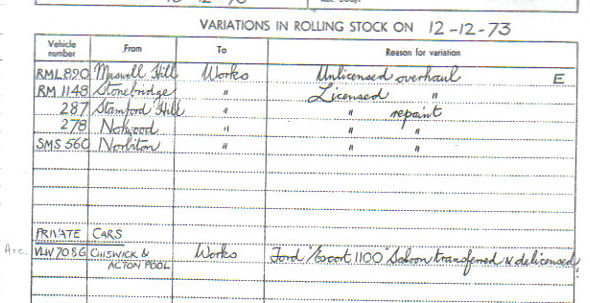 VARIATIONS IN ROLLING STOCK ON 12-12-73
Vehicle number From To Reason for variation
RML 890 Muswell Hill Works Unlicensed overhaul E
RM 1148 Stonebridge " Licensed "
287 Stamford Hill " " repaint
278 Norwood " " "
SMS 560 Norbiton " " "
PRIVATE CARS
Acc. VLW 708G CHISWICK & ACTON POOL Works Ford "Escort 1100" Saloon transferred & delicensed